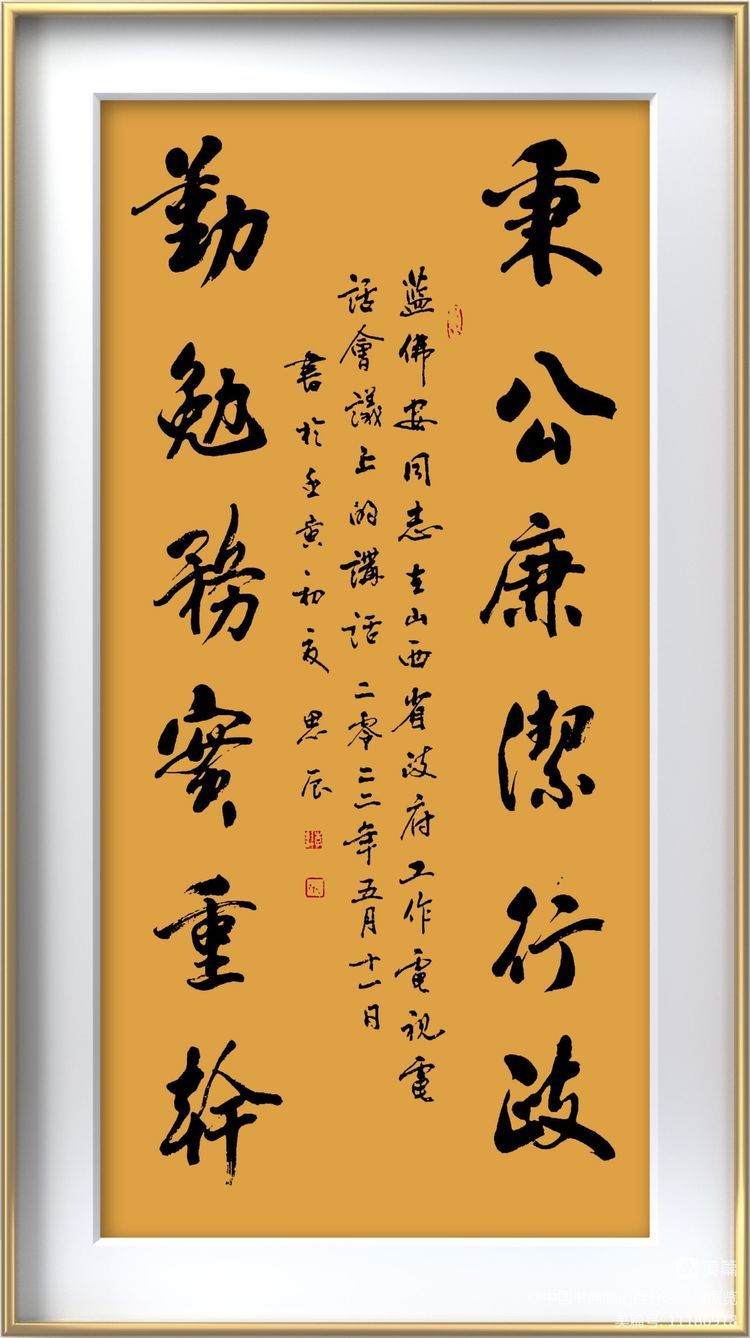 秉公廉潔行政
藍佛安同志在山西省政府工作電視電
話會議上的講話二零二二年五月十一日
書於壬寅初夏思辰
勤勉務實重幹
美篇